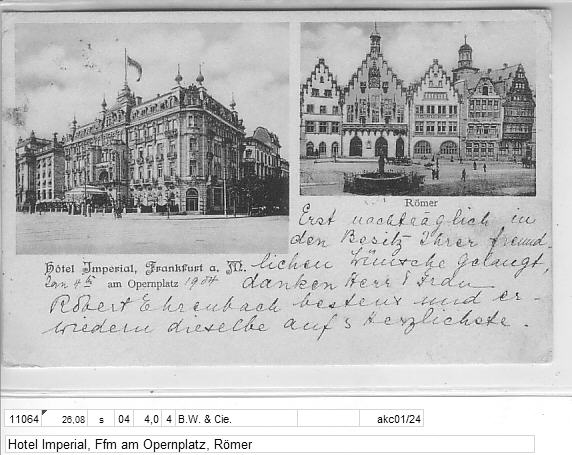 Römer
Erst nachträglich in
den Besitz Ihrer freund-
Hôtel Imperial, Frankfurt a. M.
lichen Wünsche gelangt,
Jan 4th am Opernplatz 1904
danken Herr & Frau
Robert Ehrenbach bestens und er-
wiedern dieselbe auf's Herzlichste.
11064 26,08 s 04 4,0 4 B.W. & Cie. akc01/24
Hotel Imperial, Ffm am Opernplatz, Römer